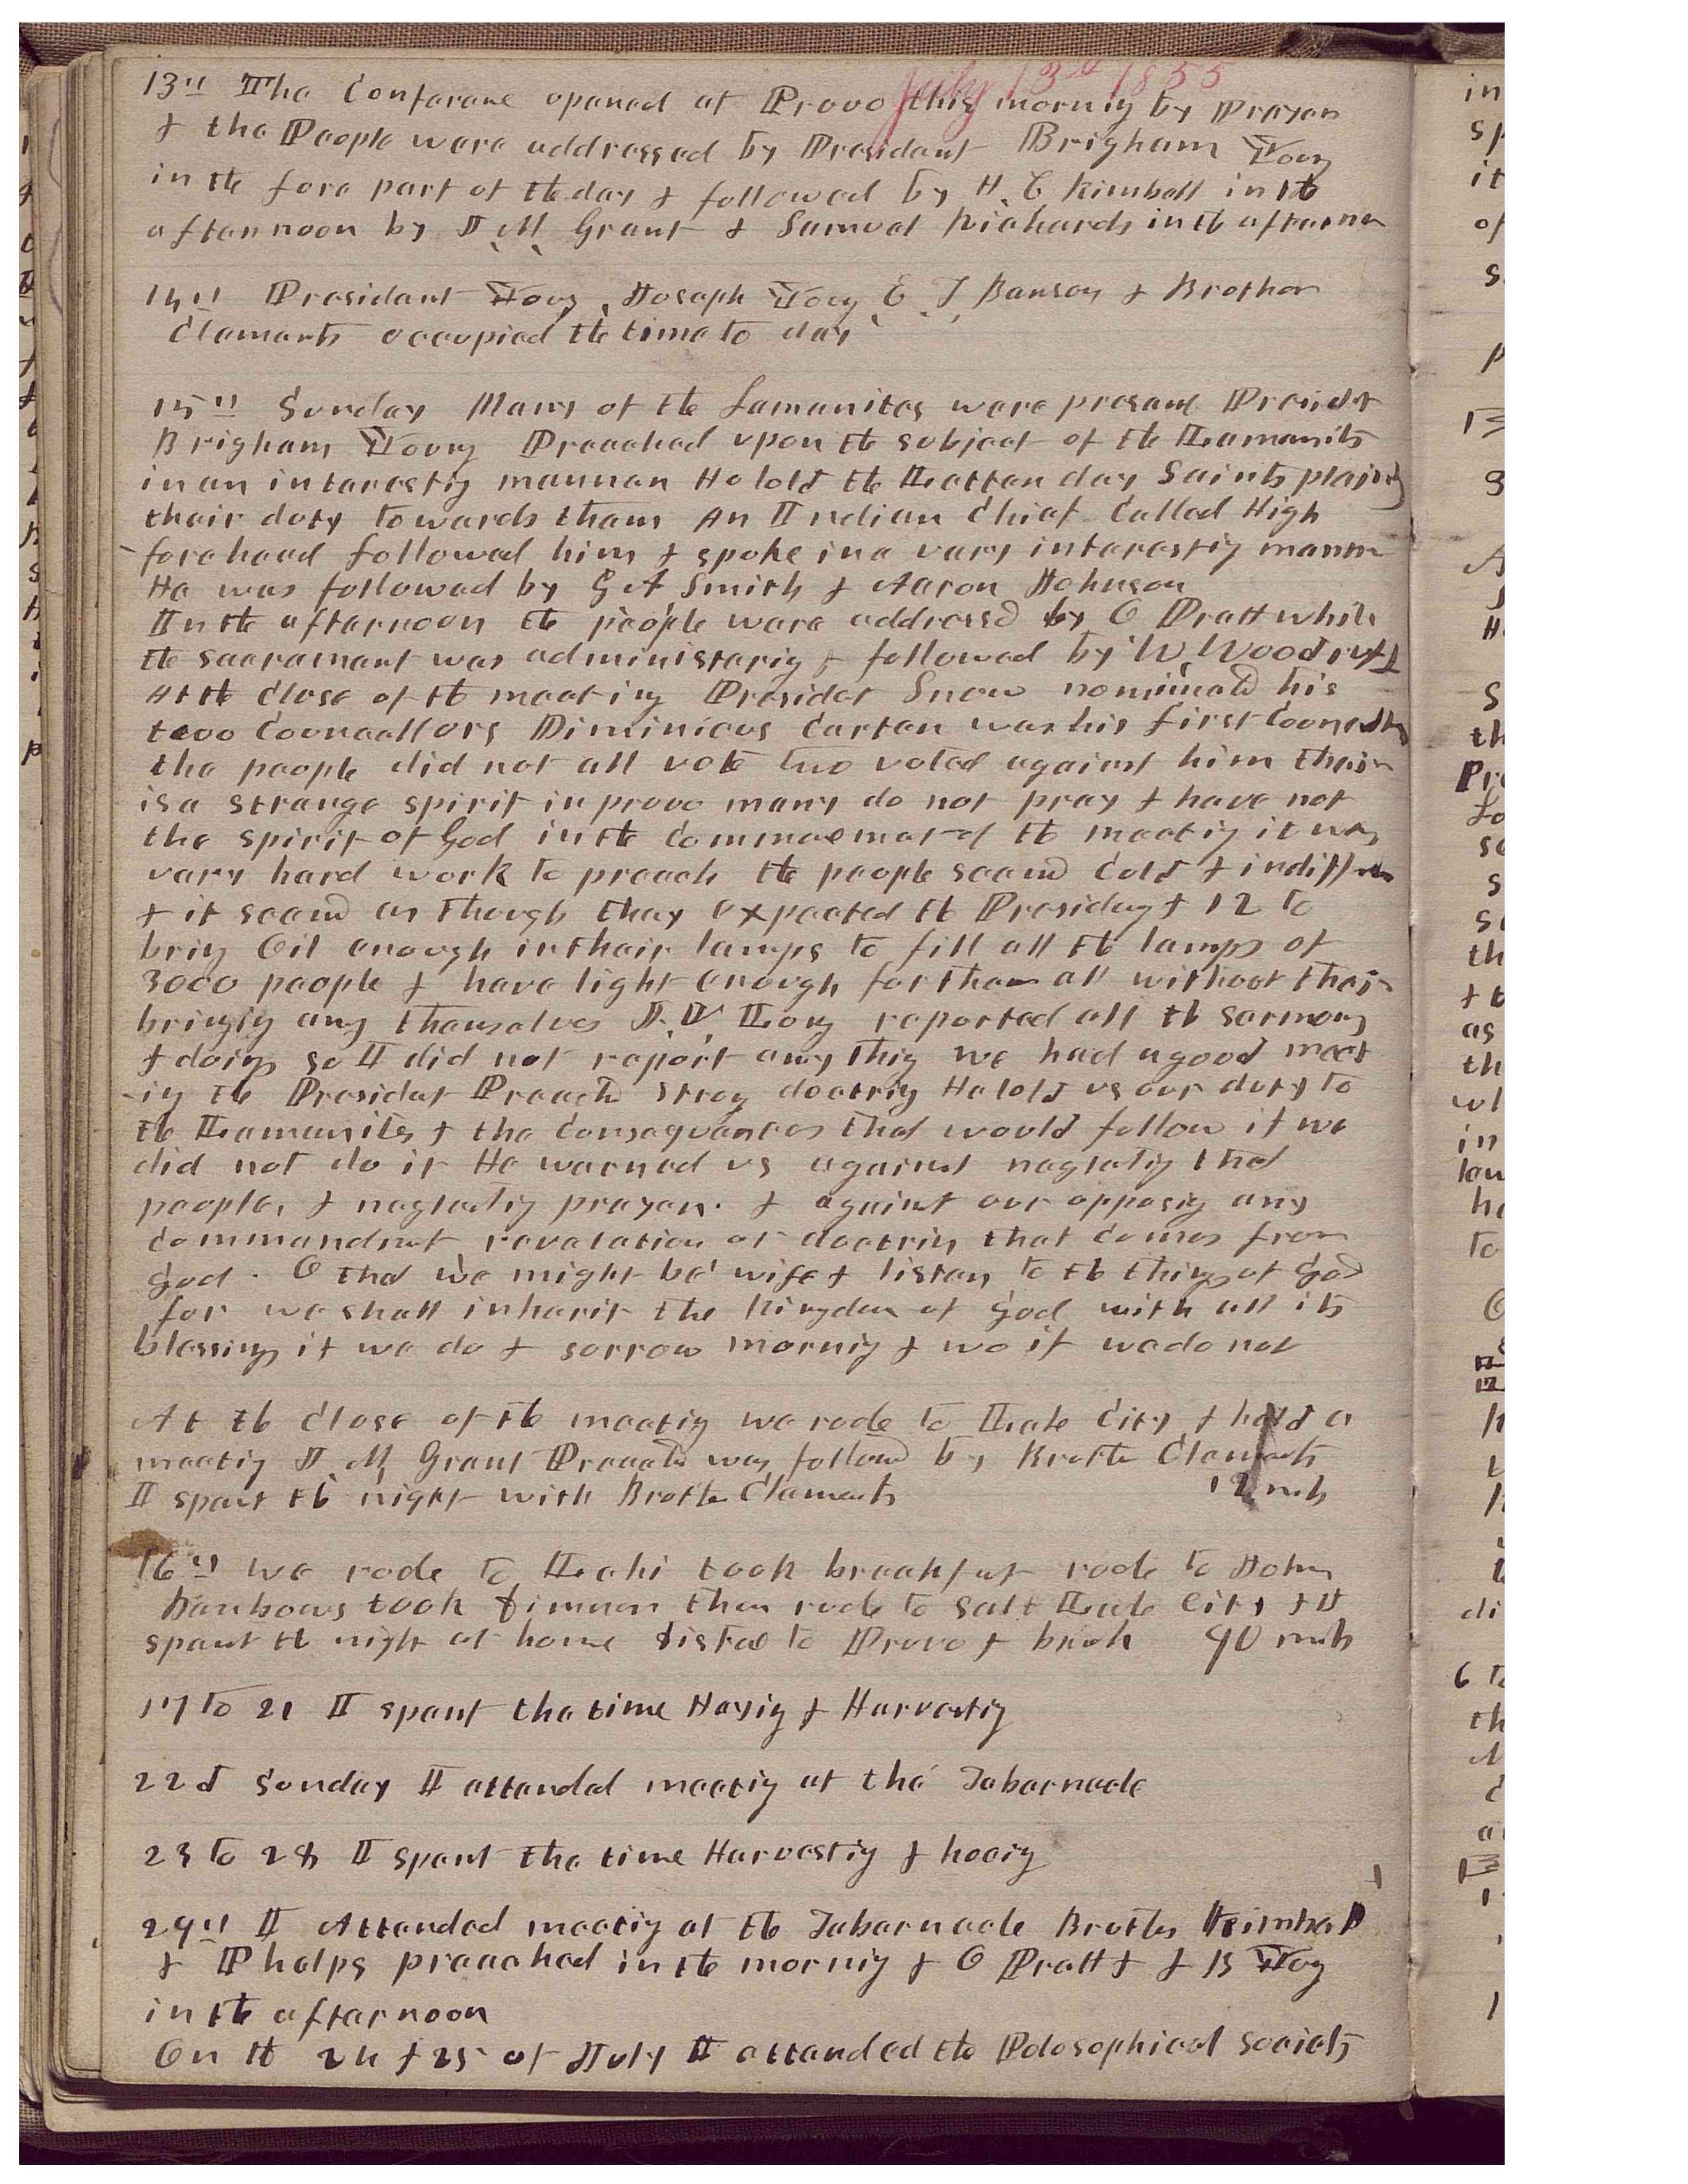 July 13th 1855
13th The Conferance opened at Provo this mornig by Prayer
& the People were addressed by President Brigham Young
in the fore part of the day & followed by H. C Kimball in the
afternoon by J. M. Grant & Samuel Richards in the afternon
14th President Young, Joseph Young E. T. Benson & Brother
Clements occupied the time to day
15th Sunday Many of the Lamanites were present Presidet
Brigham Young Preached upon the subject of the Lamanits
in an interestig manner He told the Latter day Saints plainly
their duty towards them An Indian Chief Called High
-forehead followed him & spoke in a very interestig manner
He was followed by G A Smith & Aaron Johnson
In the afternoon the people were addressed by O Pratt while
the sacrament was administerig & followed by W. Woodruff
At the close of the meeting Presidet Snow nominated his
two Councellors Diminicus Carter was his first Councellor
the people did not all vote two voted against him their
is a strange spirit in provo many do not pray & have not
the spirit of God in the Commencement of the meetig it was
very hard work to preach the people seemd Cold & indifferen
& it seemd as though they expected the Presidency & 12 to
brig Oil enough in their lamps to fill all the lamps of
3000 people & have light enough for them all without their
bringig any themselves J. V. Long reported all the sermons
& doigs so I did not report any thig we had a good meet
-ig the Presidet Preachd strog doctrig He told us our duty to
the Lamanites & the Consequences that would follow if we
did not do it He warned us against neglectig that
people, & neglectig prayer. & against our opposig any
commandmet revelation or doctrin that comes from
God. O that we might be wise & listen to the things of God
for we shall inherit the kingdom of God with all its
blessings if we do & sorrow mornig & wo if we do not
At the close of the meetig we rode to Lake City & held a
meetig J. M. Grant Preachd was followd by Brother Clements
I spent the night with Brother Clements 12 mils
16th we rode to Lehi took breakfast rode to John
Banbows took dinner then rode to Salt Lake City & I
spent the night at home distace to Provo & back 90 mils
17 to 21 I spent the time Hayig & Harvestig
22d Sunday I attended meetig at the Tabernacle
23 to 28 I spent the time Harvestig & hoeig
29th I Attended meetig at the Tabernacle Brothers Kimball
& Phelps preached in the mornig & O Pratt & J B Yog
in the afternoon
On the 24 & 25 of July I attended the Polosophical Society